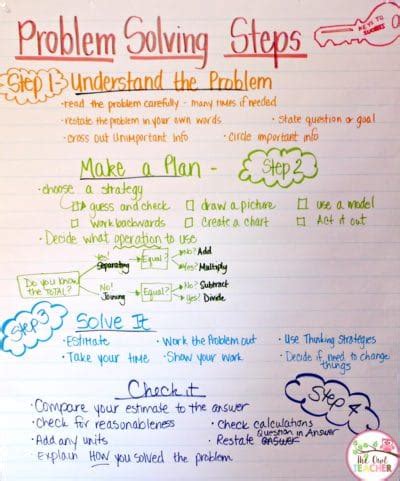 Problem Solving Steps
KEYS TO SUCCESS
Step 1 Understand the Problem
• read the problem carefully - many times if needed
• restate the problem in your own words • State question or goal
• cross out unimportant info • circle important info
Make a Plan - Step 2
• choose a strategy
guess and check draw a picture use a model
work backwards create a chart Act it out
• Decide what operation to use
Do you know the TOTAL?
Yes! Separating Equal? No? Add
Yes? Multiply
No! Joining Equal? No? Subtract
Yes! Divide
Step 3 Solve It
• Estimate • Work the Problem out • Use Thinking Strategies
• Take your time • Show your work • Decide if need to change things
Check it Step 4
• Compare your estimate to the answer
• Check for reasonableness • Check calculations
• Add any units • Restate Question in Answer
• Explain HOW you solved the problem
The Owl TEACHER